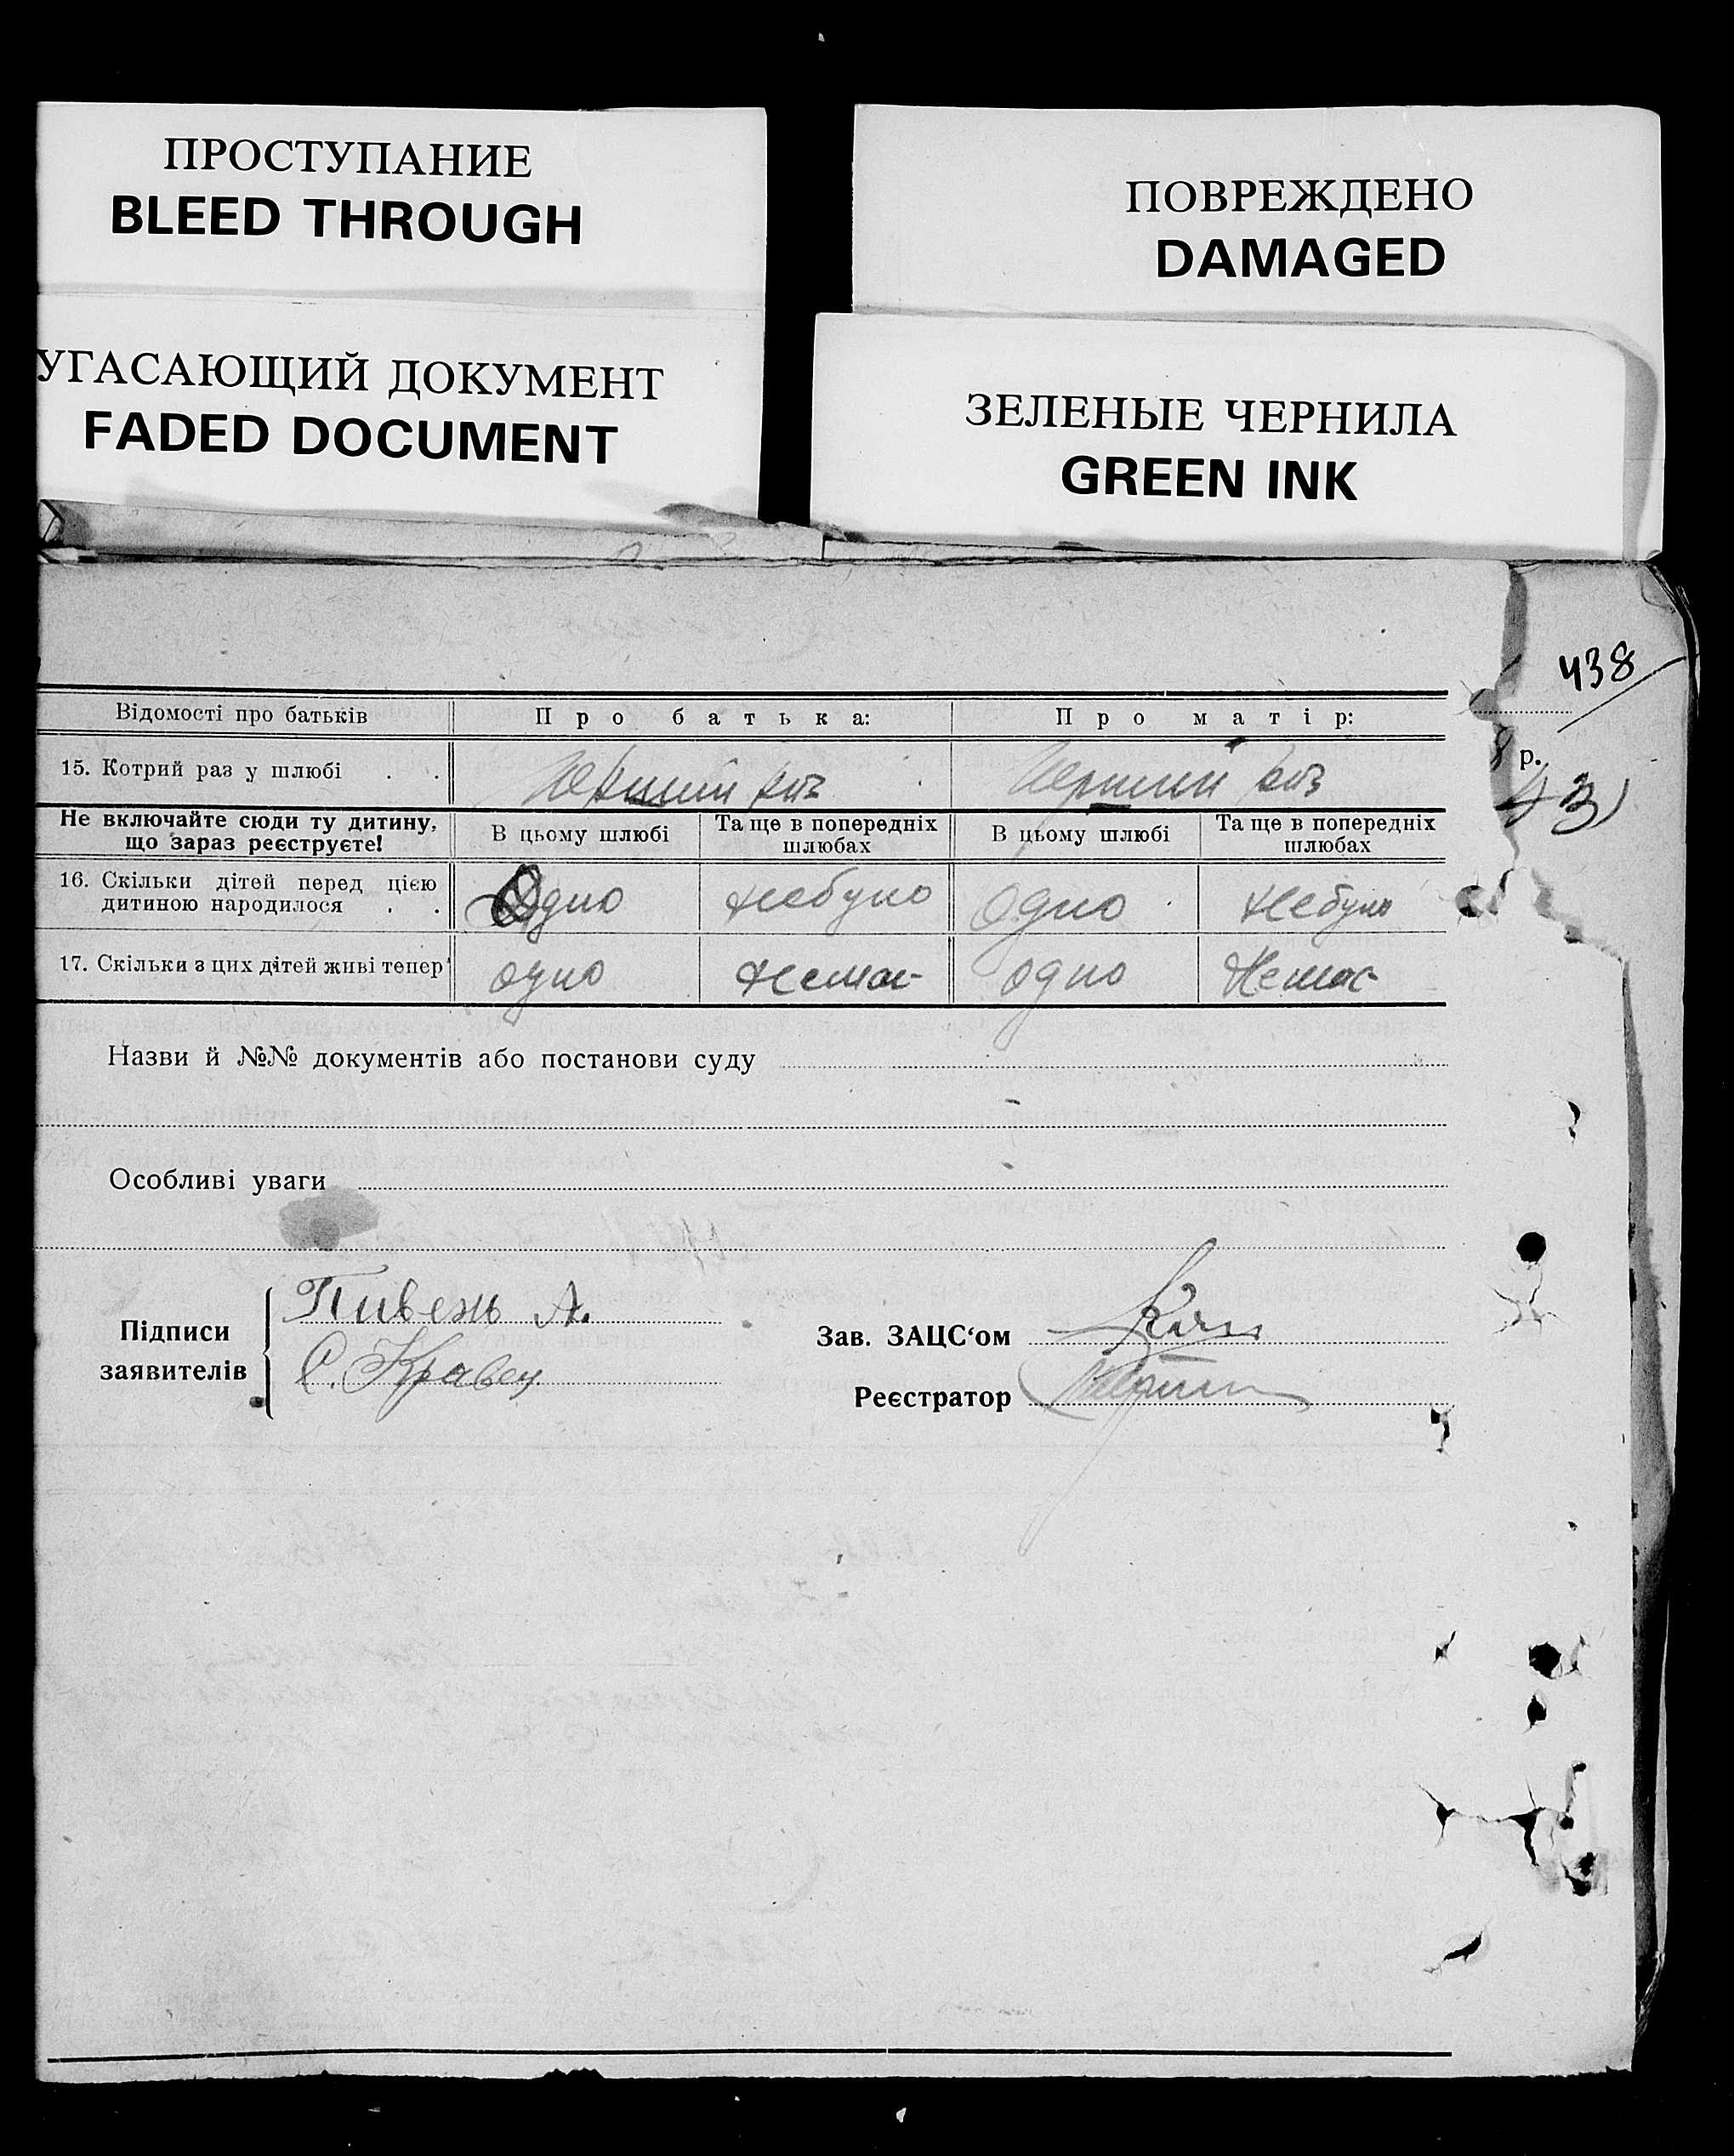 ПРОСТУПАНИЕ
BLEED THROUGH
ПОВРЕЖДЕНО
DAMAGED
УГАСАЮЩИЙ ДОКУМЕНТ
FADED DOCUMENT
ЗЕЛЕНЫЕ ЧЕРНИЛА
GREEN INK
438
Відомості про батьків Про батька: Про матір:
8 р.
15. Котрий раз у шлюбі . . Перший раз Перший раз
43
Не включайте сюди ту дитину, що зараз реєструєте! В цьому шлюбі Та ще в попередніх шлюбах В цьому шлюбі Та ще в попередніх шлюбах
16. Скільки дітей перед цією
дитиною народилося . . Одно небуло Одно небуло
17. Скільки з цих дітей живі тепер одно немає одно Немає
Назви й №№ документів або постанови суду
Особливі уваги
Підписи заявителів
Пивень А.
С. Кравец
Зав. ЗАЦС‘ом
Реєстратор